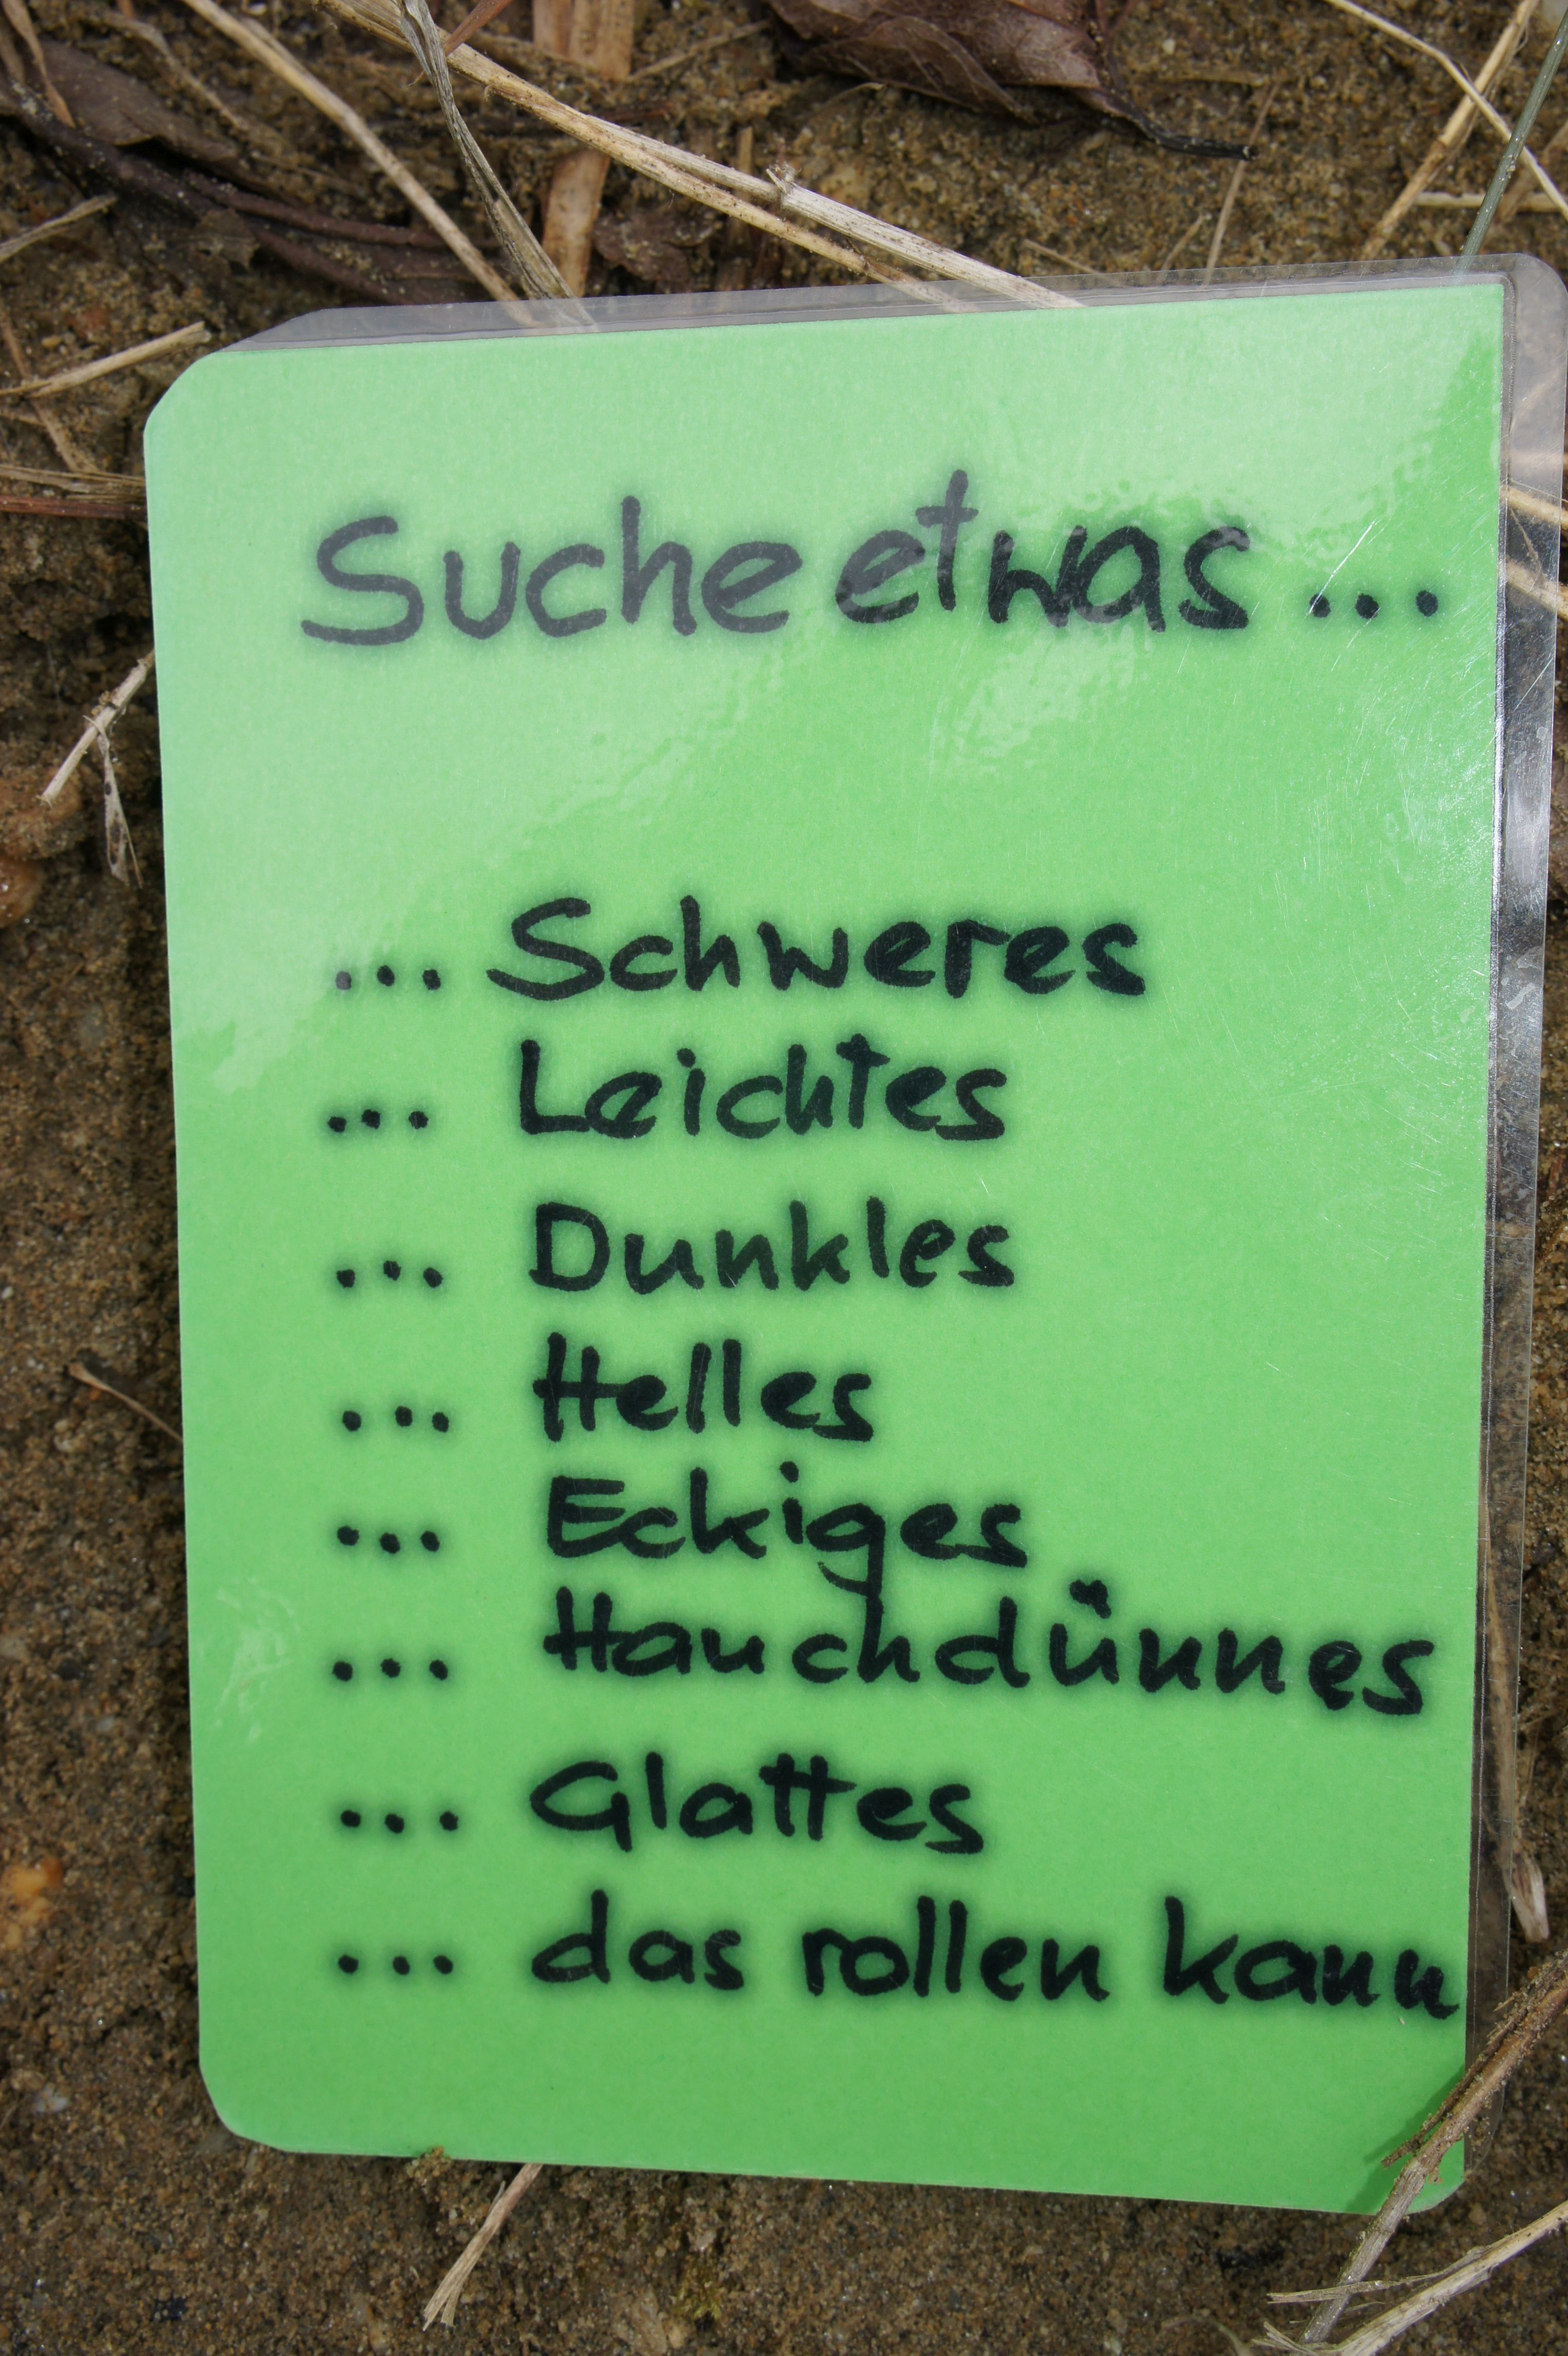 Suche etwas ...
... Schweres
... Leichtes
... Dunkles
... Helles
... Eckiges
... Hauchdünnes
... Glattes
... das rollen kann